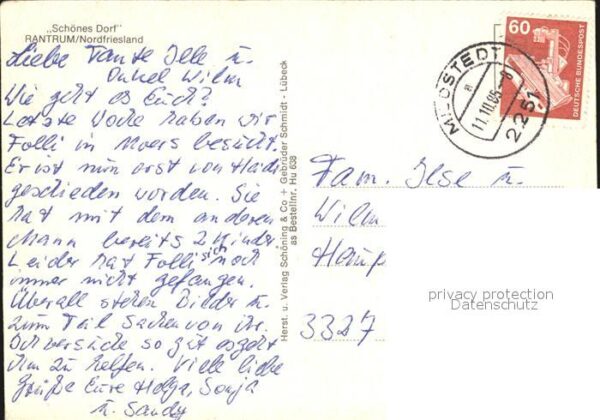 „Schönes Dorf"
RANTRUM/Nordfriesland
Liebe Tante Ilse u.
Onkel Wilm
Wie geht es Euch?
Letzte Woche haben wir
Folli in Moers besucht.
Er ist nun erst von Heidi
geschieden worden. Sie
hat mit dem anderen
Mann bereits 2 Kinder.
Leider hat Folli sich noch
immer nicht gefangen.
Überall stehen Bilder u.
zum Teil Sachen von ihr.
Ich versuche so gut es geht
ihm zu helfen. Viele liebe
Grüße Eure Helga, Sonja
u. Sandy
Herst. u. Verlag Schöning & Co + Gebrüder Schmidt - Lübeck
as Bestellnr. Hu 638
60
DEUTSCHE BUNDESPOST
MILDSTEDT
11.10.85
2251
Fam. Ilse u.
Wilm
Hemp
3327
privacy protection
Datenschutz